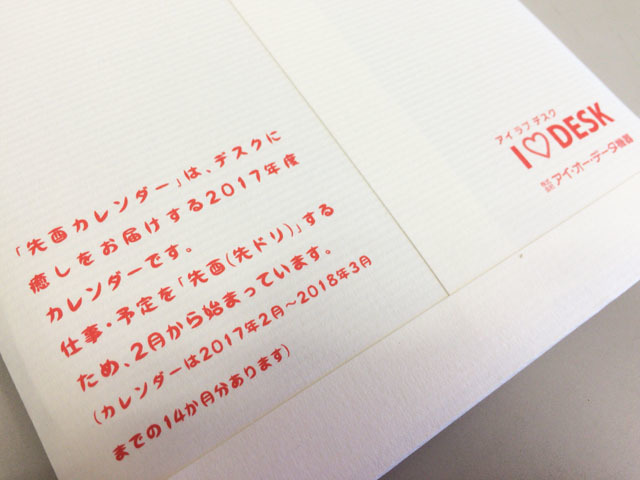 「先酉カレンダー」は、デスクに
癒しをお届けする2017年度
カレンダーです。
仕事・予定を「先酉(先ドリ)」する
ため、2月から始まっています。
(カレンダーは2017年2月～2018年3月
までの14か月分あります)
アイ ラブ デスク
I♡DESK
株式会社アイ・オー・データ機器